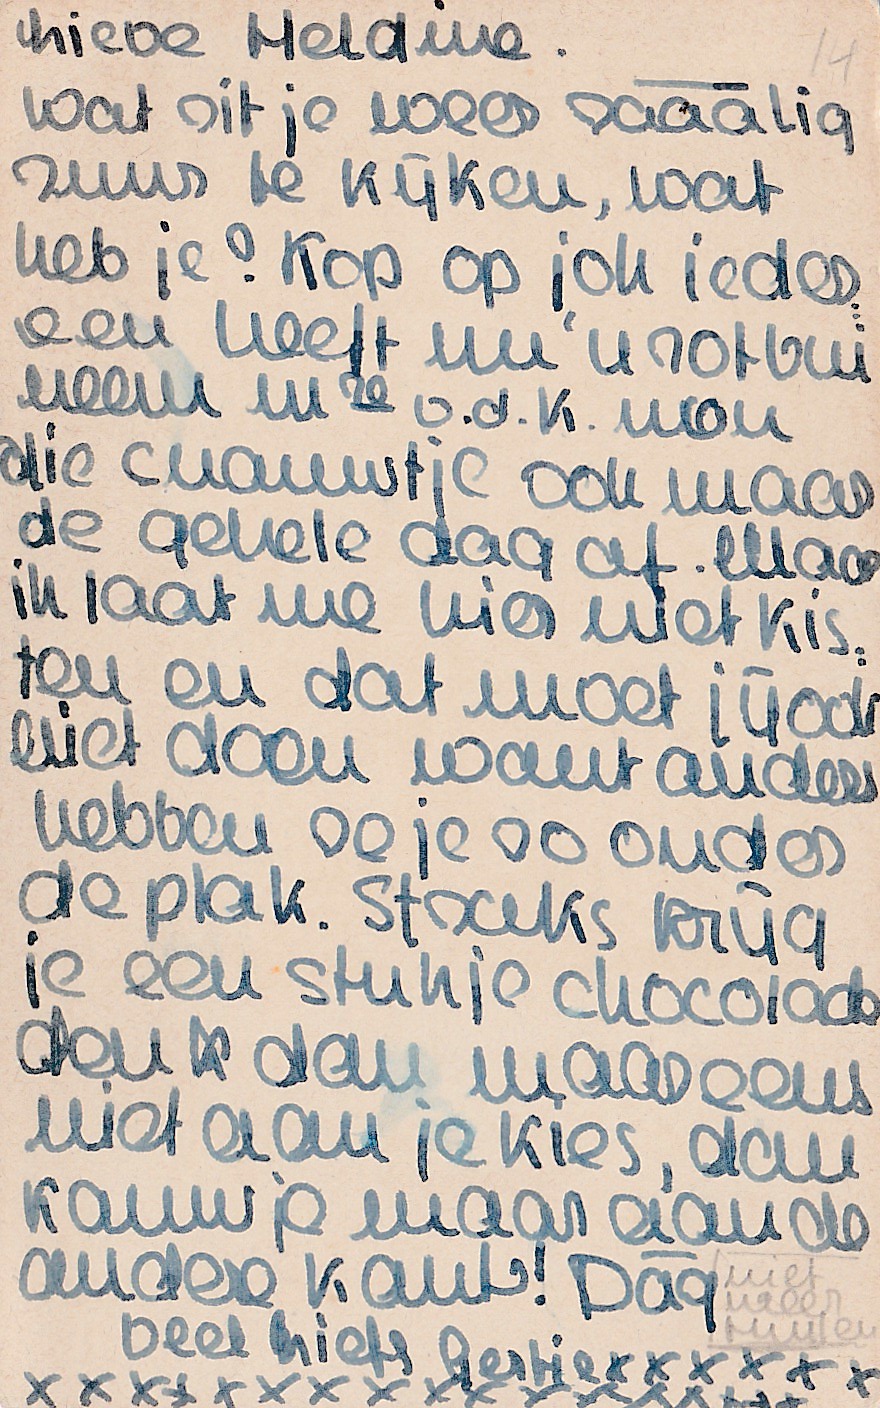 14
Lieve Heldine.
wat zit je weer zāāālig
zuur te kijken, wat
heb je? Kop op joh ieder:
een heeft nu 'n rotbui
neem nu
die
ook maar
de gehele dag af. Maar
ik laat me hier niet kis:
ten en dat moet jij ook
niet doen want anders
hebben ze je zo onder
de plak. Straks krijg
je een stukje chocolade
denk dan maar eens
niet aan je kies, dan
kauw je maar aan de
andere kant! Dāg
niet
meer
ruilen
veel liefs Gertie xxxxxxx
xxxxxxxxxxxxxxx